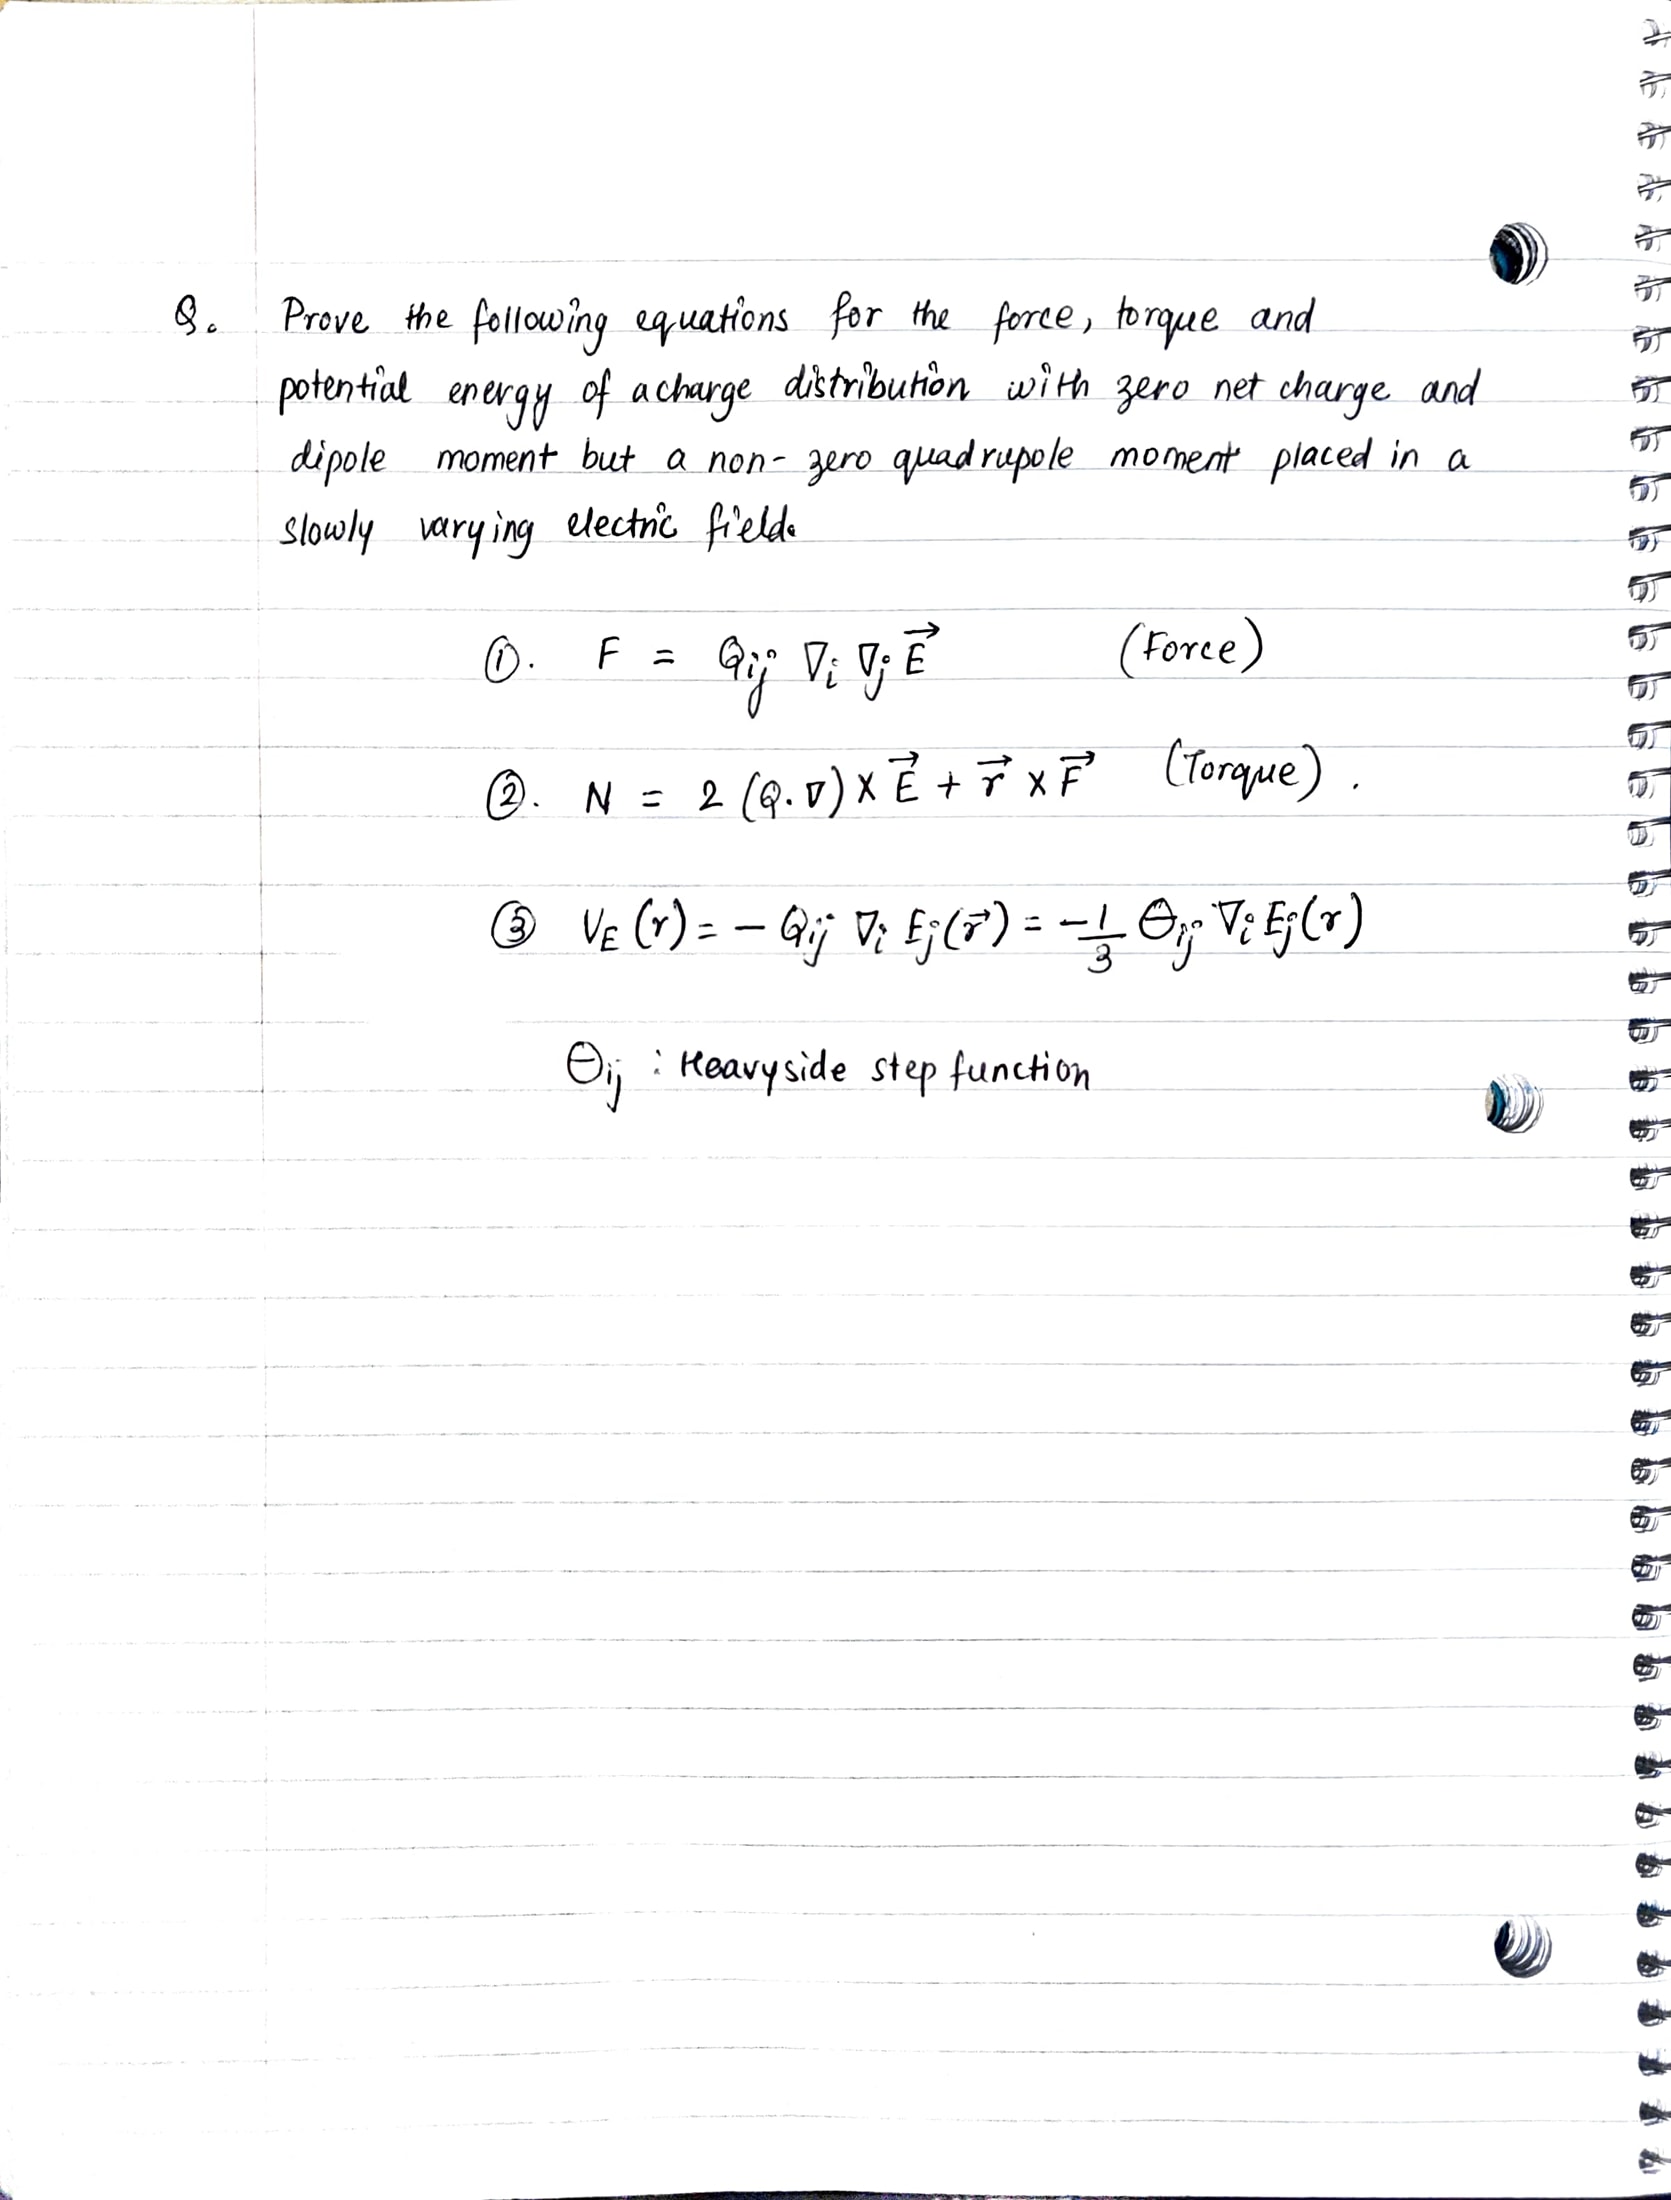 Q. Prove the following equations for the force, torque and
potential energy of a charge distribution with zero net charge and
dipole moment but a non-zero quadrupole moment placed in a
slowly varying electric field.
①. F = Qij ∇i ∇j E⃗ (Force)
②. N = 2 (Q.∇) × E⃗ + r⃗ × F⃗ (Torque).
③ VE (r) = - Qij ∇i Ej(r⃗) = -1/3 Θij ∇i Ej(r)
Θij : Heavyside step function